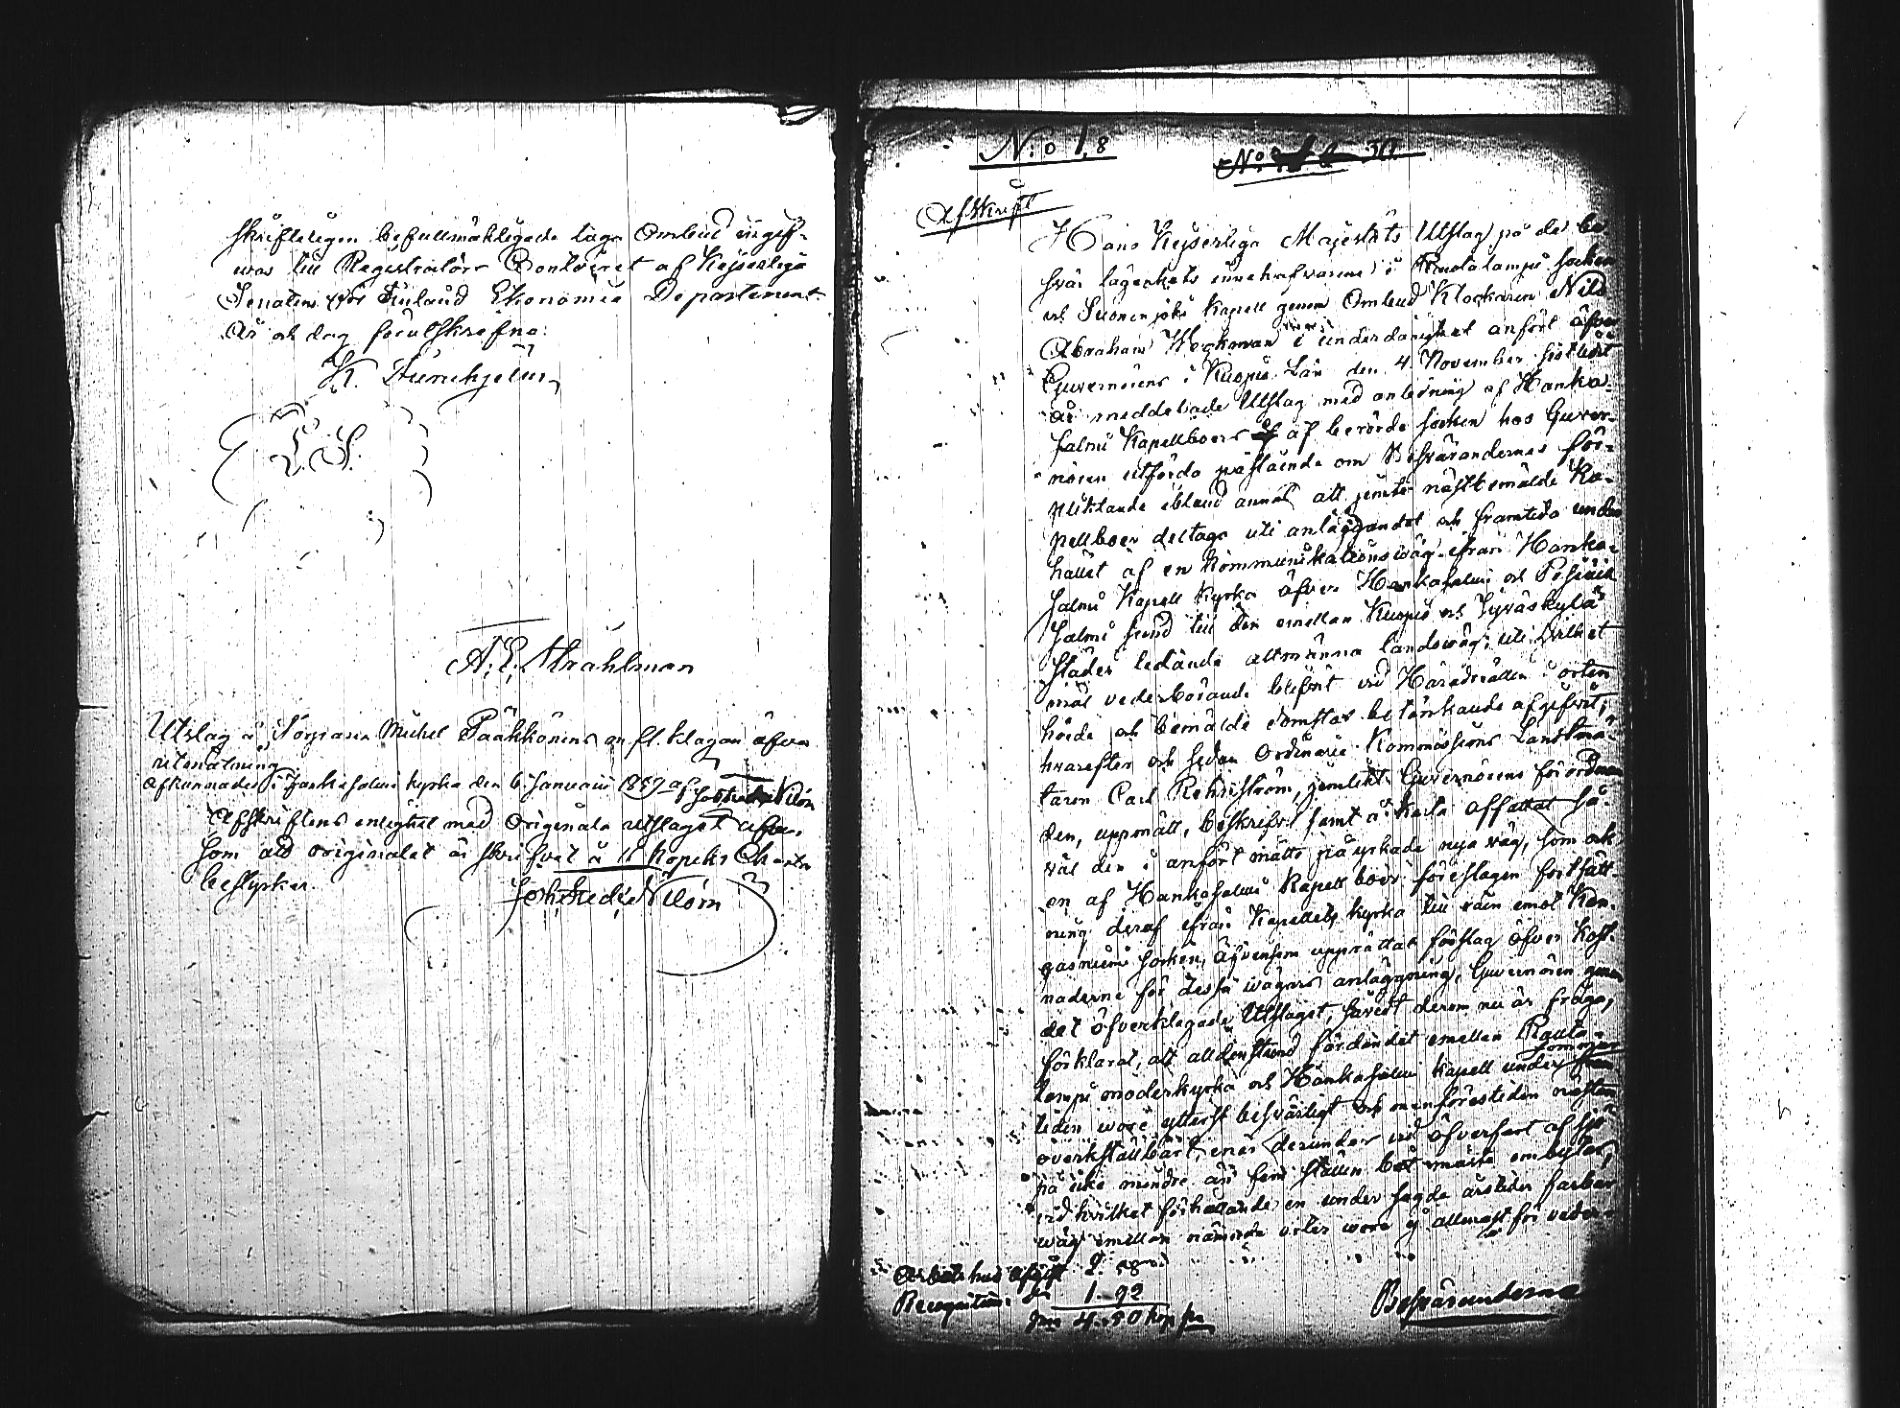 skrifteligen befullmäktigade laga Ombud ingif-
was till Registrators Contoiret af Kejserliga
Senaten för Finland Ekonomie Departement
År och dag förutskrefne.
K. Furuhjelm
L.S.
A. E. Strahlman
Utslag å Torparen Michel Pääkkönens m fl. klagan öfver
utmätning
Afkunnades i Hankasalmi kyrka den 6 Januarii 1857 af Joh Fredr Nilôn
Afskriftens enlighet med originala utslaget äfven
som att originalet är skrifvet å 15 Kopeks Charta
bestyrker.
Joh. Fredr. Nilôn
N:o 1,8
Afskrift
Hans Kejserliga Majestäts Utslag på de be-
svär lägenhets innehafvarne i Rautalampi socken
och Suonenjoki Kapell genom Ombud Klockaren Nils
Abraham Heckman i underdånighet anfört öfver
Guvernörens i Kuopio Län den 4 November sistledt
år meddelade Utslag med anledning af Hanka-
salmi Kapellboers af berörde socken hos Guver-
nören utförda påstående om Besvärandernes för-
pliktande ibland annat att jemte nästbemälde Ka-
pellboer deltaga uti anläggandet och framtida under
hållet af en Kommunikations wäg ifrån Hanka-
salmi Kapell Kyrka öfver Hankasalmi och
salmi sund till den emellan Kuopio och Jyväskylä
städer ledande allmänna landswäg; uti hvilket
mål vederbörande blifvit vid Häradsrätten i orten
hörde och bemälde domstol betänkande afgifvit,
hvarefter och sedan Ordinarie Kommissions Landtmä-
taren Carl Rehnström, jemlikt Guvernörens förordnan
den, uppmätt, beskrifvit samt å karta affattat så
väl den i anfört måtto påyrkade nya väg, som ock
en af Hankasalmi Kapellboer föreslagen fortsätt-
ning deraf ifrån Kapellets kyrka till råin emot Kan-
gasniemi socken, äfvensom upprättat förslag öfver kost-
naderne för dessa wägars anläggning, Guvernören genom
det öfverklagade Utslaget, såvidt derom nu är fråga,
förklarat, att alldenstund färdandet emellan Rauta-
lampi moderkyrka och Hankasalmi kapell under sommar
tiden wore ytterst besvärligt och menförestiden nästan
overkställbart, enär derunder vid öfverfart af sjö
på icke mindre än fem ställen båt måste ombytas,
vid hvilket förhållande en under sagde årstider farbar
wäg emellan nämnde orter wore ej allenast för veder-
Arbetshus afgift 2. 58
Recognition. 1-92
4.50 kop
Besväranderne